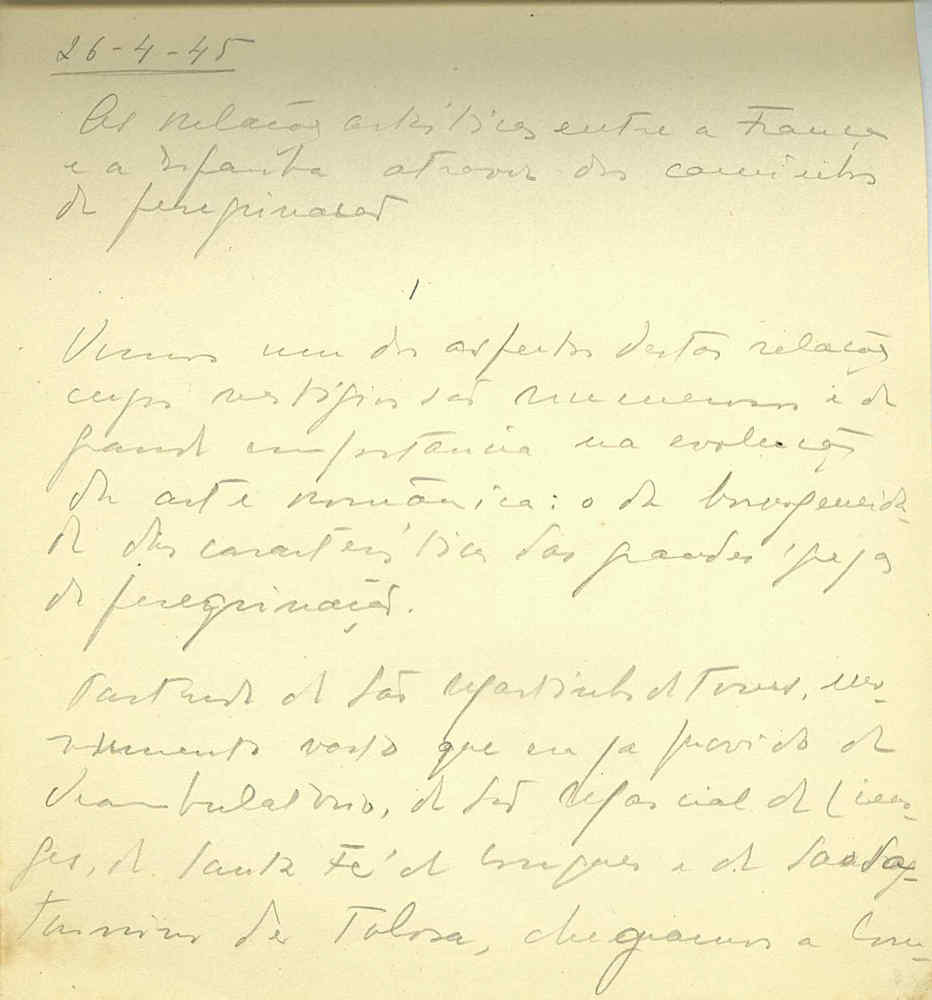 26-4-45
As relações artísticas entre a França
e a Espanha através dos caminhos
de peregrinação
1
Vimos um dos aspectos destas relações
cujos vestígios são numerosos e de
grande importância na evolução
da arte românica: o da homogeneida-
de das características das grandes igrejas
de peregrinação.
Partindo de São Martinho de Tours, mo-
numento vasto que era já provido de
deambulatório, de São Marcial de Limo-
ges, de Santa Fé de Conques e de São Sa-
turnino de Tolosa, chegamos a Com-